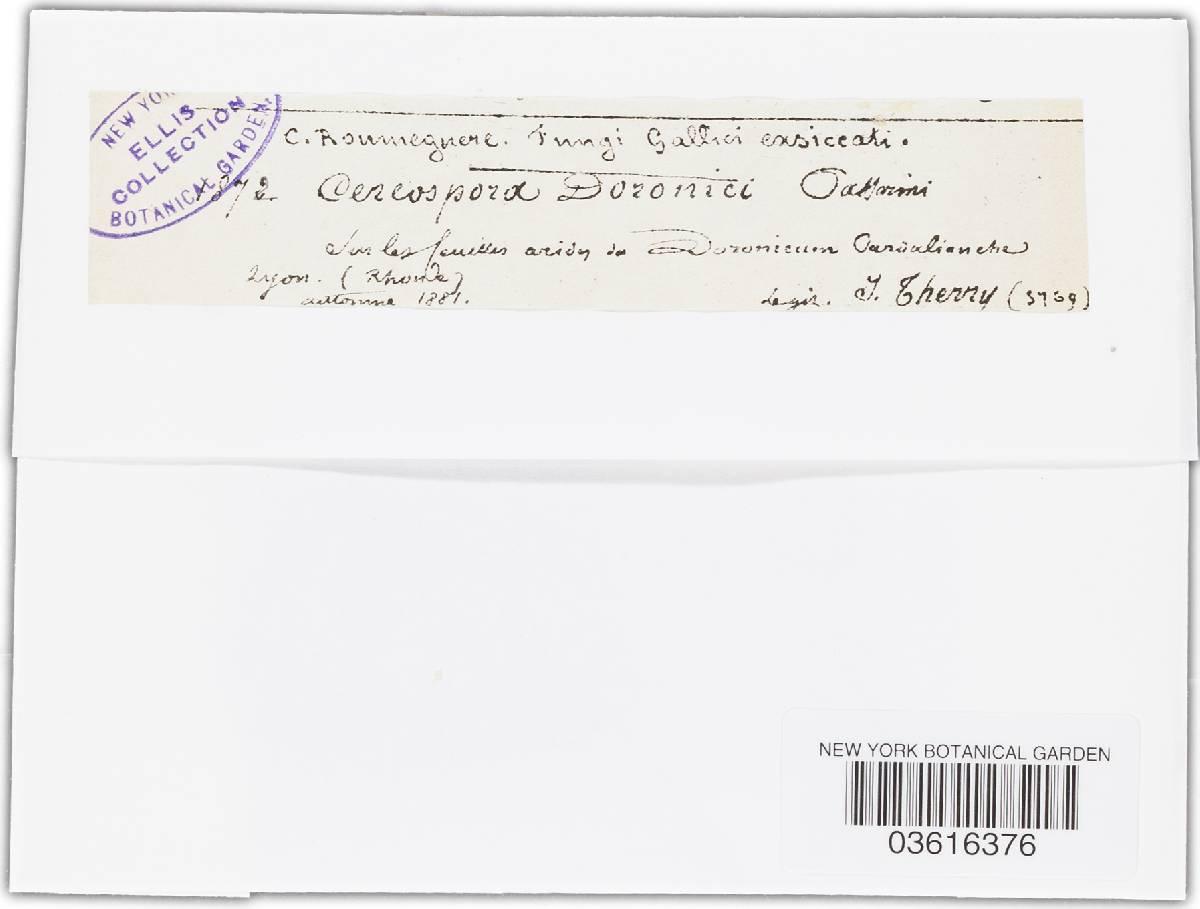 NEW YO
ELLIS
COLLECTION
BOTANICAL GARDEN.
C. Roumeguere. Fungi Gallici exsiccati.
Cercospora Doronici Passerini
Sur les feuilles arides de Doronicum Pardalianche
Lyon. (Rhone)
automne 1881.
Legit. J. Therry (5739)
NEW YORK BOTANICAL GARDEN
03616376